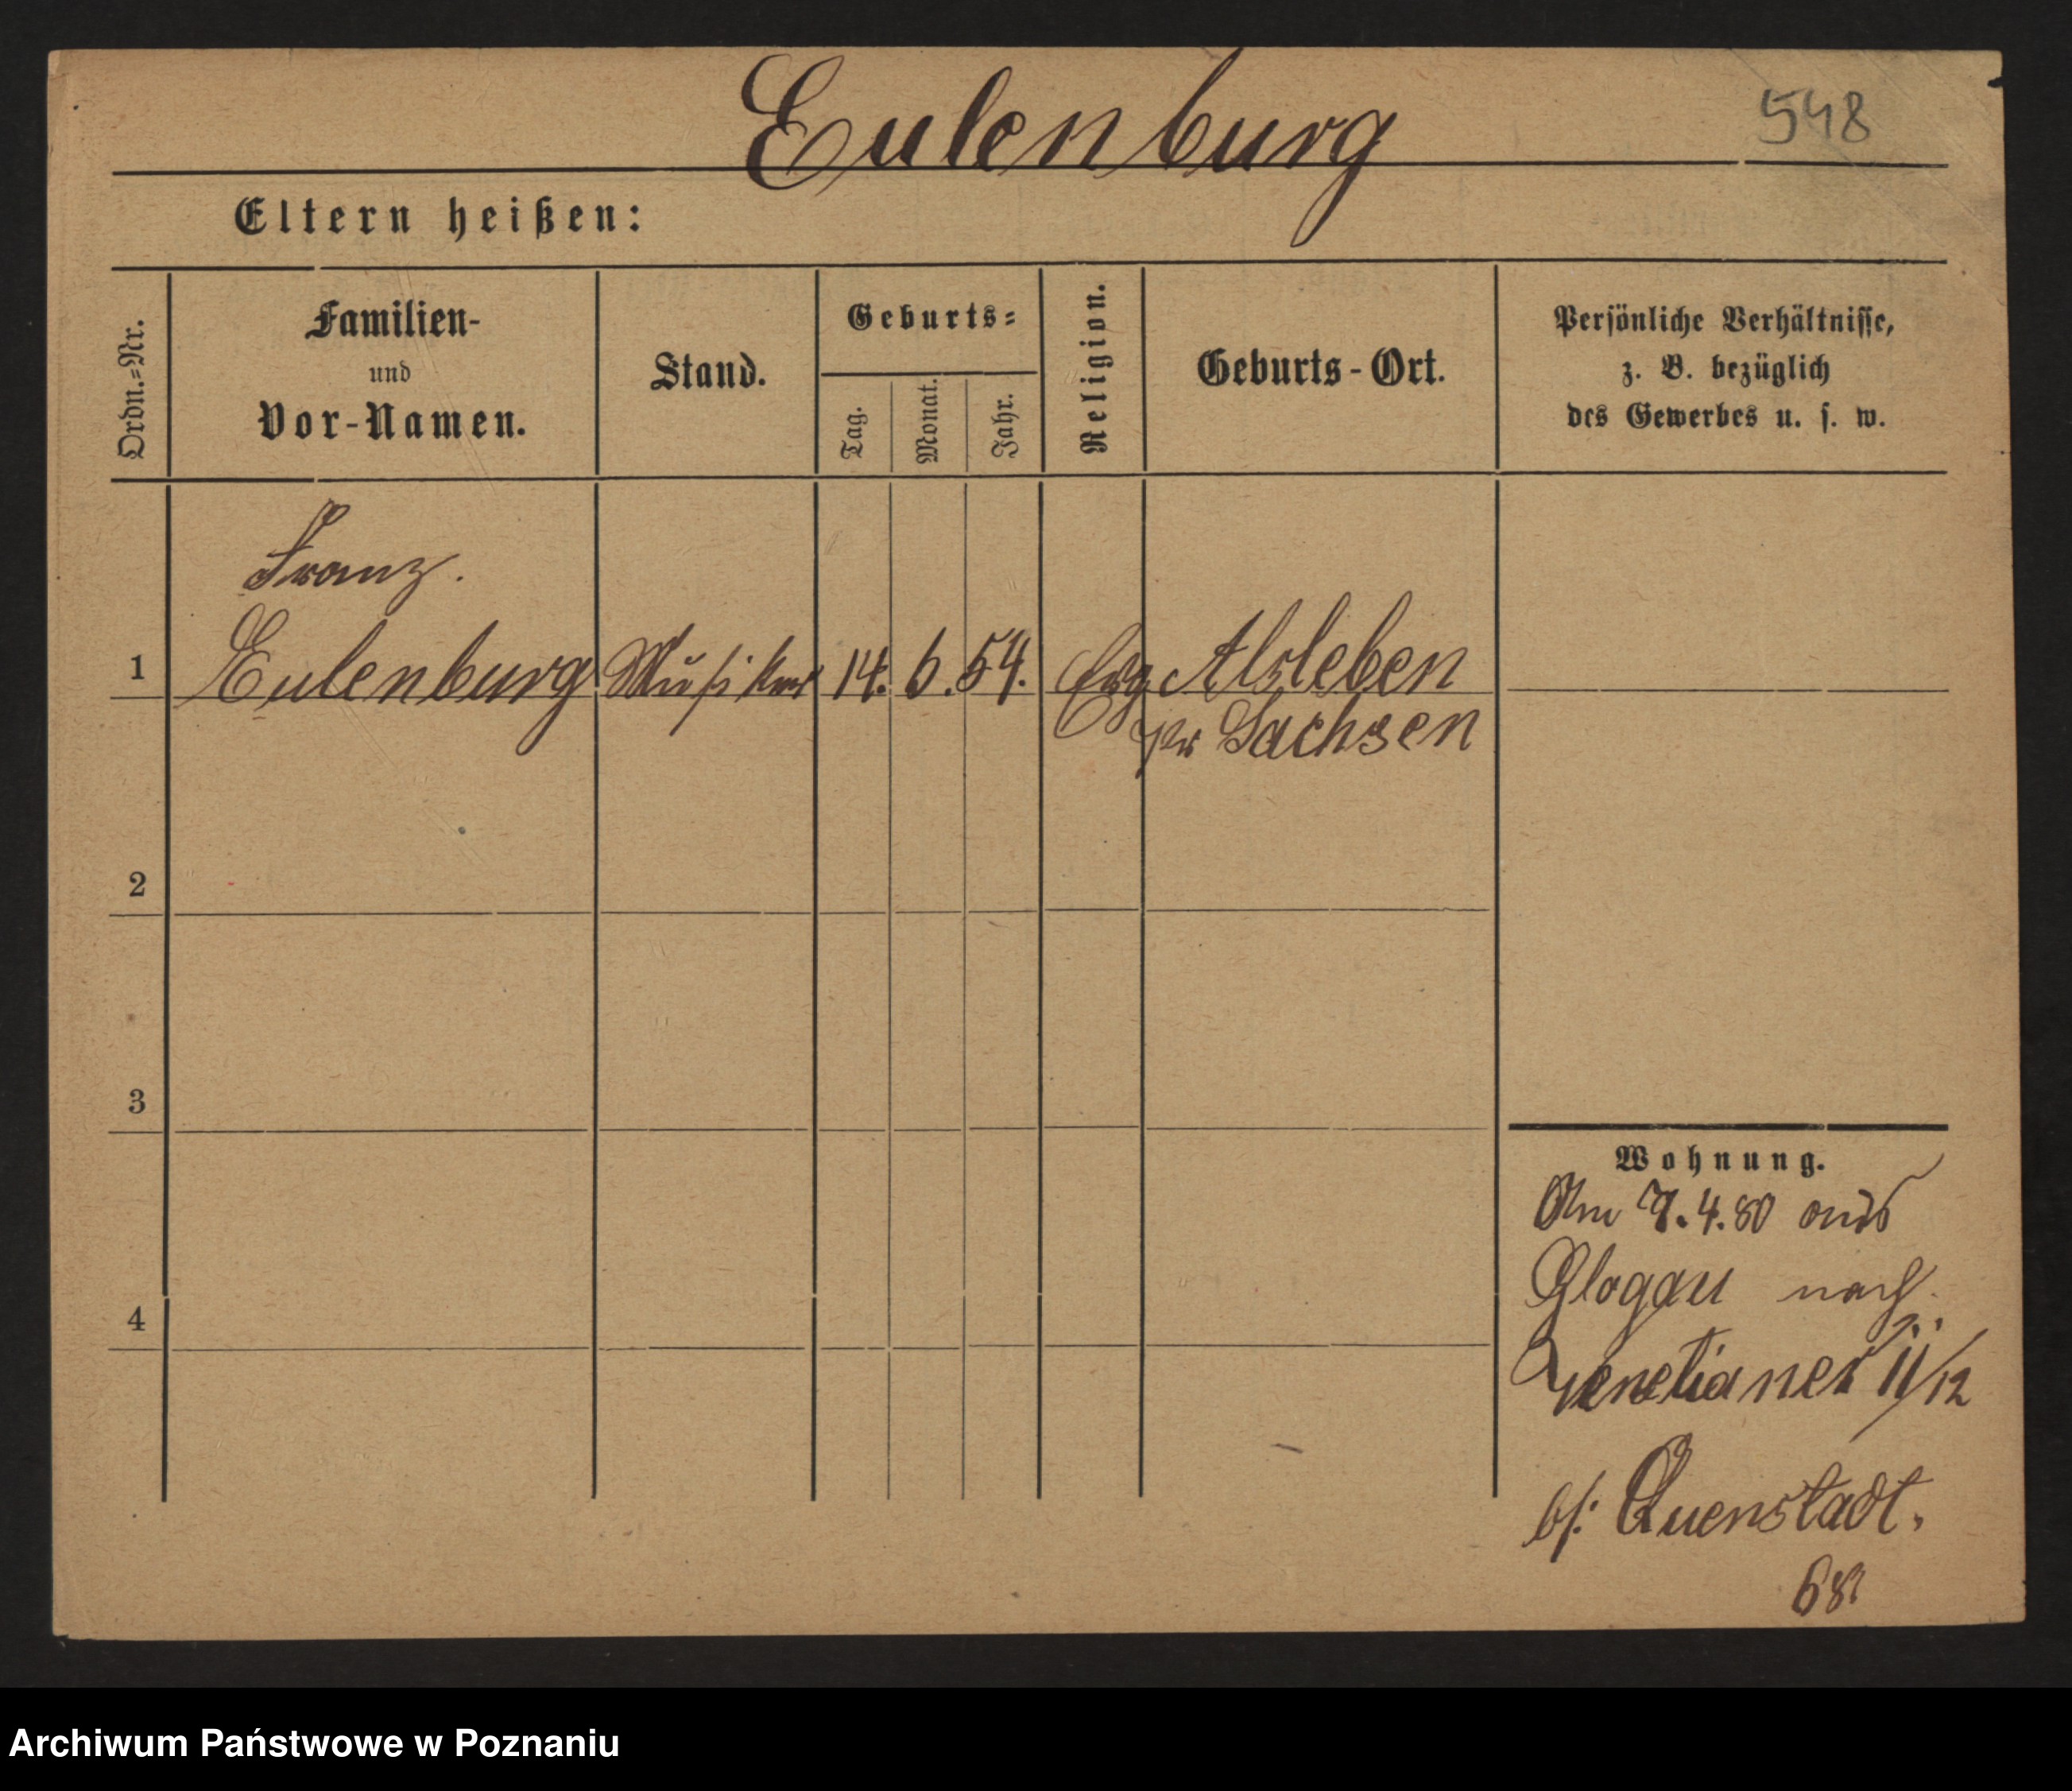 Eulenburg
548
Eltern heißen:
Ordn.=Nr.
Familien-
und
Vor-Namen.
Stand.
Geburts=
Tag.
Monat.
Jahr.
Religion.
Geburts-Ort.
Persönliche Verhältnisse,
z. B. bezüglich
des Gewerbes u. s. w.
Franz.
1 Eulenburg Musiker 14. 6. 54. Evg Alsleben
Pr Sachsen
2
3
4
Wohnung.
Am 7.4.80 aus
Glogau nach
Venetianer 11/12
bf: Quenstadt.
Archiwum Państwowe w Poznaniu